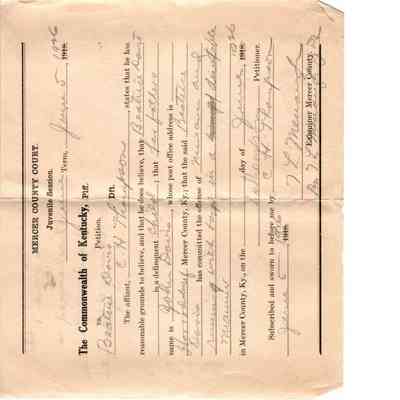 MERCER COUNTY COURT.
Juvenile Session.
June Term, June 5 1926 1918.
The Commonwealth of Kentucky, Plf.
vs. Petition.
Beatrice Davis Dft.
The affiant, C H Thompson, states that he has
reasonable grounds to believe, and that he does believe, that Beatrice Davis
is a delinquent child; that her father's
name is John Davis, whose post office address is
Mercer County, Ky; that the said Beatrice
Davis has committed the offense of
running with boys in a
manner
in Mercer County, Ky., on the day of June, 1926 1918.
C H Thompson Petitioner.
Subscribed and sworn to before me by
June 5 1926 1918.
Examiner Mercer County.